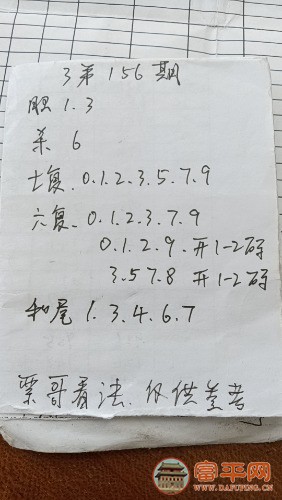 3第156期
胆 1.3
杀 6
七复.0.1.2.3.5.7.9
六复.0.1.2.3.7.9
0.1.2.9.开1-2码
3.5.7.8 开1-2码
和尾 1.3.4.6.7
票哥看法.仅供参考
富平网
WWW.DAFUPING.CN